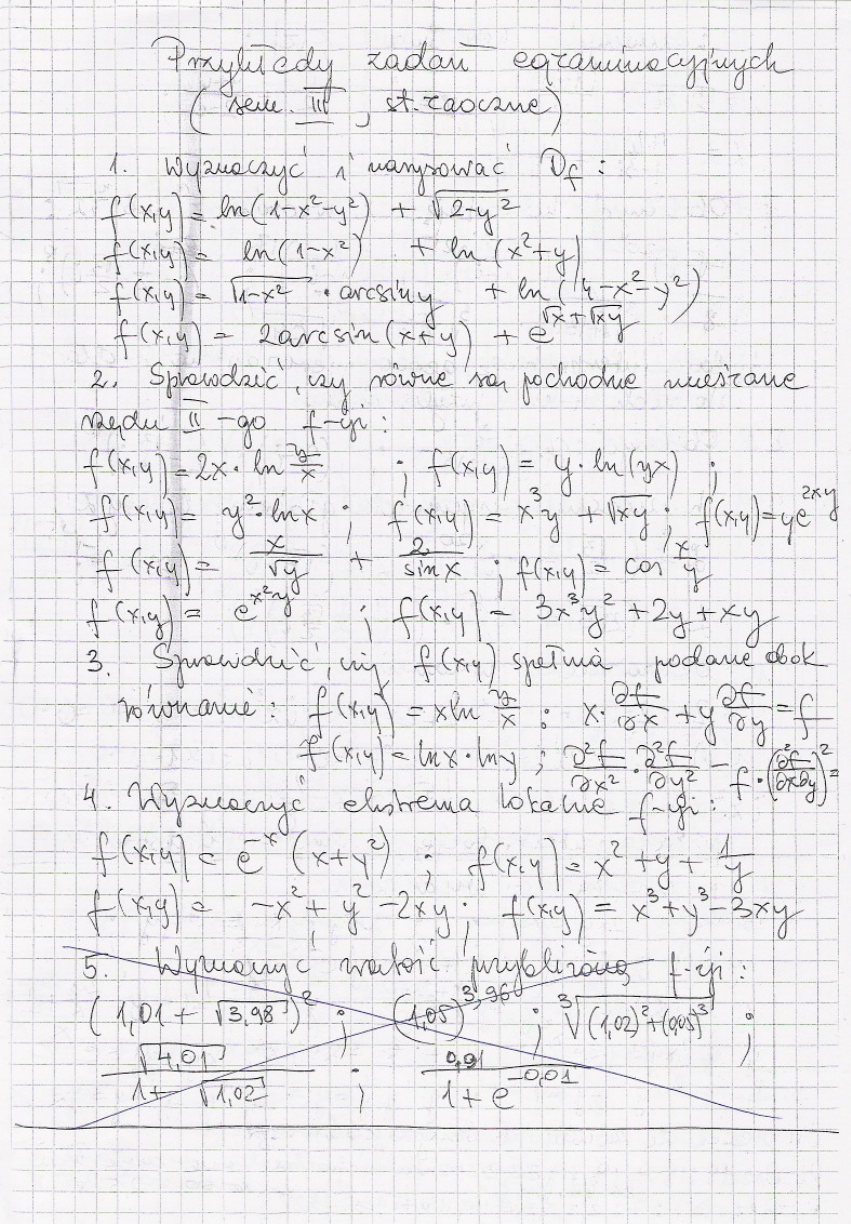 Przykłady zadań egzaminacyjnych
(sem. III, st. zaoczne)
1. Wyznaczyć i narysować D_f :
f(x,y) = ln(1-x²-y²) + √(2-y²)
f(x,y) = ln(1-x²) + ln(x²+y)
f(x,y) = √(1-x²) · arcsin y + ln(4-x²-y²)
f(x,y) = 2arcsin(x+y) + e^(√x+√xy)
2. Sprawdzić, czy równe są pochodne mieszane
rzędu II-go f-cji :
f(x,y) = 2x · ln y/x ; f(x,y) = y · ln(yx) ;
f(x,y) = y² · lnx ; f(x,y) = x³y + √xy ; f(x,y) = ye^(2xy)
f(x,y) = x/√y + 2/sinx ; f(x,y) = cos x/y
f(x,y) = e^(x²y) ; f(x,y) = 3x³y² + 2y + xy
3. Sprawdzić, czy f(x,y) spełnia podane obok
równanie : f(x,y) = xln y/x ; x · ∂f/∂x + y ∂f/∂y = f
f(x,y) = lnx · lny ; ∂²f/∂x² · ∂²f/∂y² - f · (∂²f/∂x∂y)² =
4. Wyznaczyć ekstrema lokalne f-cji :
f(x,y) = e^(-x) (x+y²) ; f(x,y) = x² + y + 1/y
f(x,y) = -x² + y² - 2xy ; f(x,y) = x³ + y³ - 3xy
5. Wyznaczyć wartość przybliżoną f-cji :
(1,01 + √3,98)² ; (1,05)^3,96 ; ³√((1,02)² + (0,05)³) ;
√4,01 / (1 + √1,02) ; 0,91 / (1 + e^(-0,01))